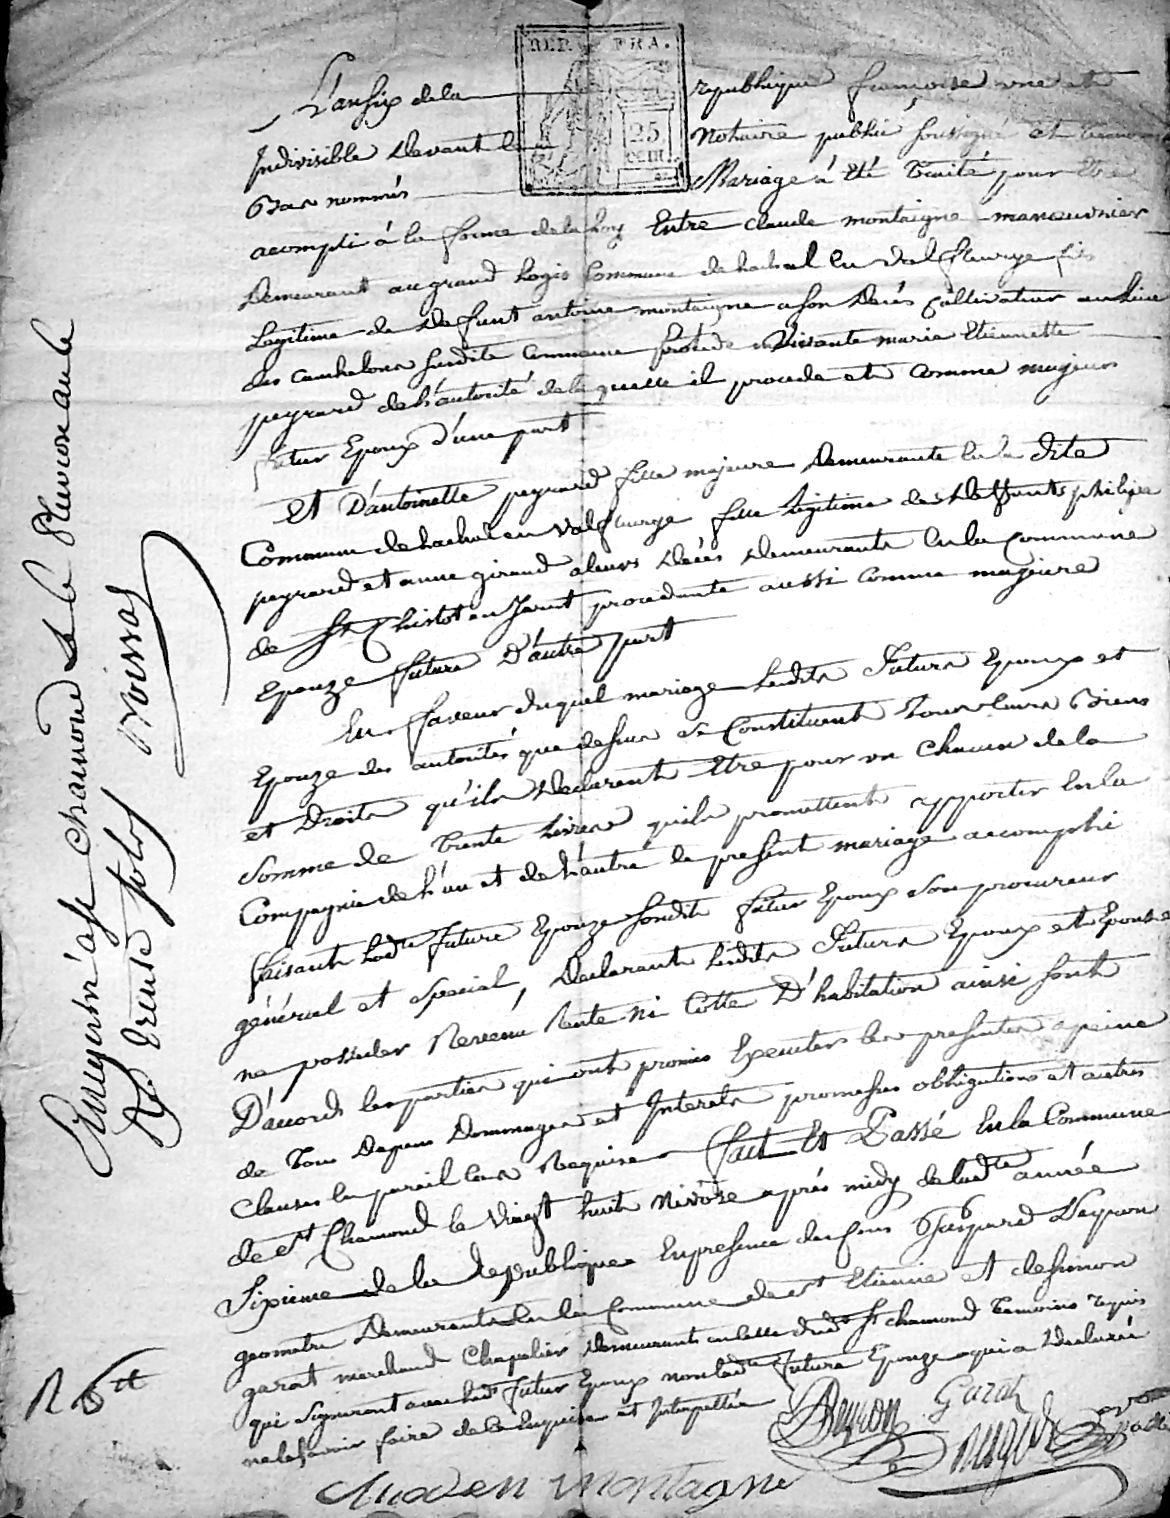 REP. FRA.
25
CENT.
L'an six de la république francoise une et
Indivisible devant le notaire public soussigné et temoins
Bas nommés Mariage à été traité pour être
acompli à la forme de la loy Entre claude montaigne manoeuvrier
Demeurant au grand Logis Commune de en val fleurye fils
Legitime de defunt antoine montaigne a son décès Cultivateur au lieu
des susdite Commune et de vivante marie Etiennette
peyrard de l'autorité de la quelle il procede et comme majeur
futur Epoux d'une part
et D'antoinette peyrard fille majeure Demeurante en la dite
Commune de en val fleurye fille légitime des deffunts philipe
peyrard et anne giraud a leurs décès demeurants en la Commune
de St Christot en Jarret procedante aussi comme majeure
Epouze future D'autre part
En faveur duquel mariage lesdits Futurs Epoux et
Epouze des autorités que dessus se Constituent tous leurs Biens
et Droits qu'ils declarent Etre pour un chacun de la
somme de trente livres qu'ils promettent apporter en la
Compagnie de l'un et de l'autre le present mariage accompli
faisant lade future Epouze sondit futur Epoux son procureur
général et special, declarant lesdits Futurs Epoux et Epouse
ne posseder Revenu Rente ni Cotte D'habitation ainsi sont
D'accord les parties qui ont promis Executer les presentes a peine
de tous depens Dommages et Interets promesses obligations et autres
Clauses en pareil cas Requises fait Et Passé En la Commune
de St Chamond le vingt huit Nivose après midy de lade année
Sixieme de la Republique En presence des Gaspard Peyron
geometre Demeurant en la Commune de St Etienne et de Simon
garat marchand Chapelier demeurant en celle dud. St chamond temoins requis
qui signeront avec led. futur Epoux non lade Future Epouze qui a declaré
ne le savoir faire de ce Enquise et Interpellée
Peyron Garat
montagne
Chamond le St Pluviose an 6